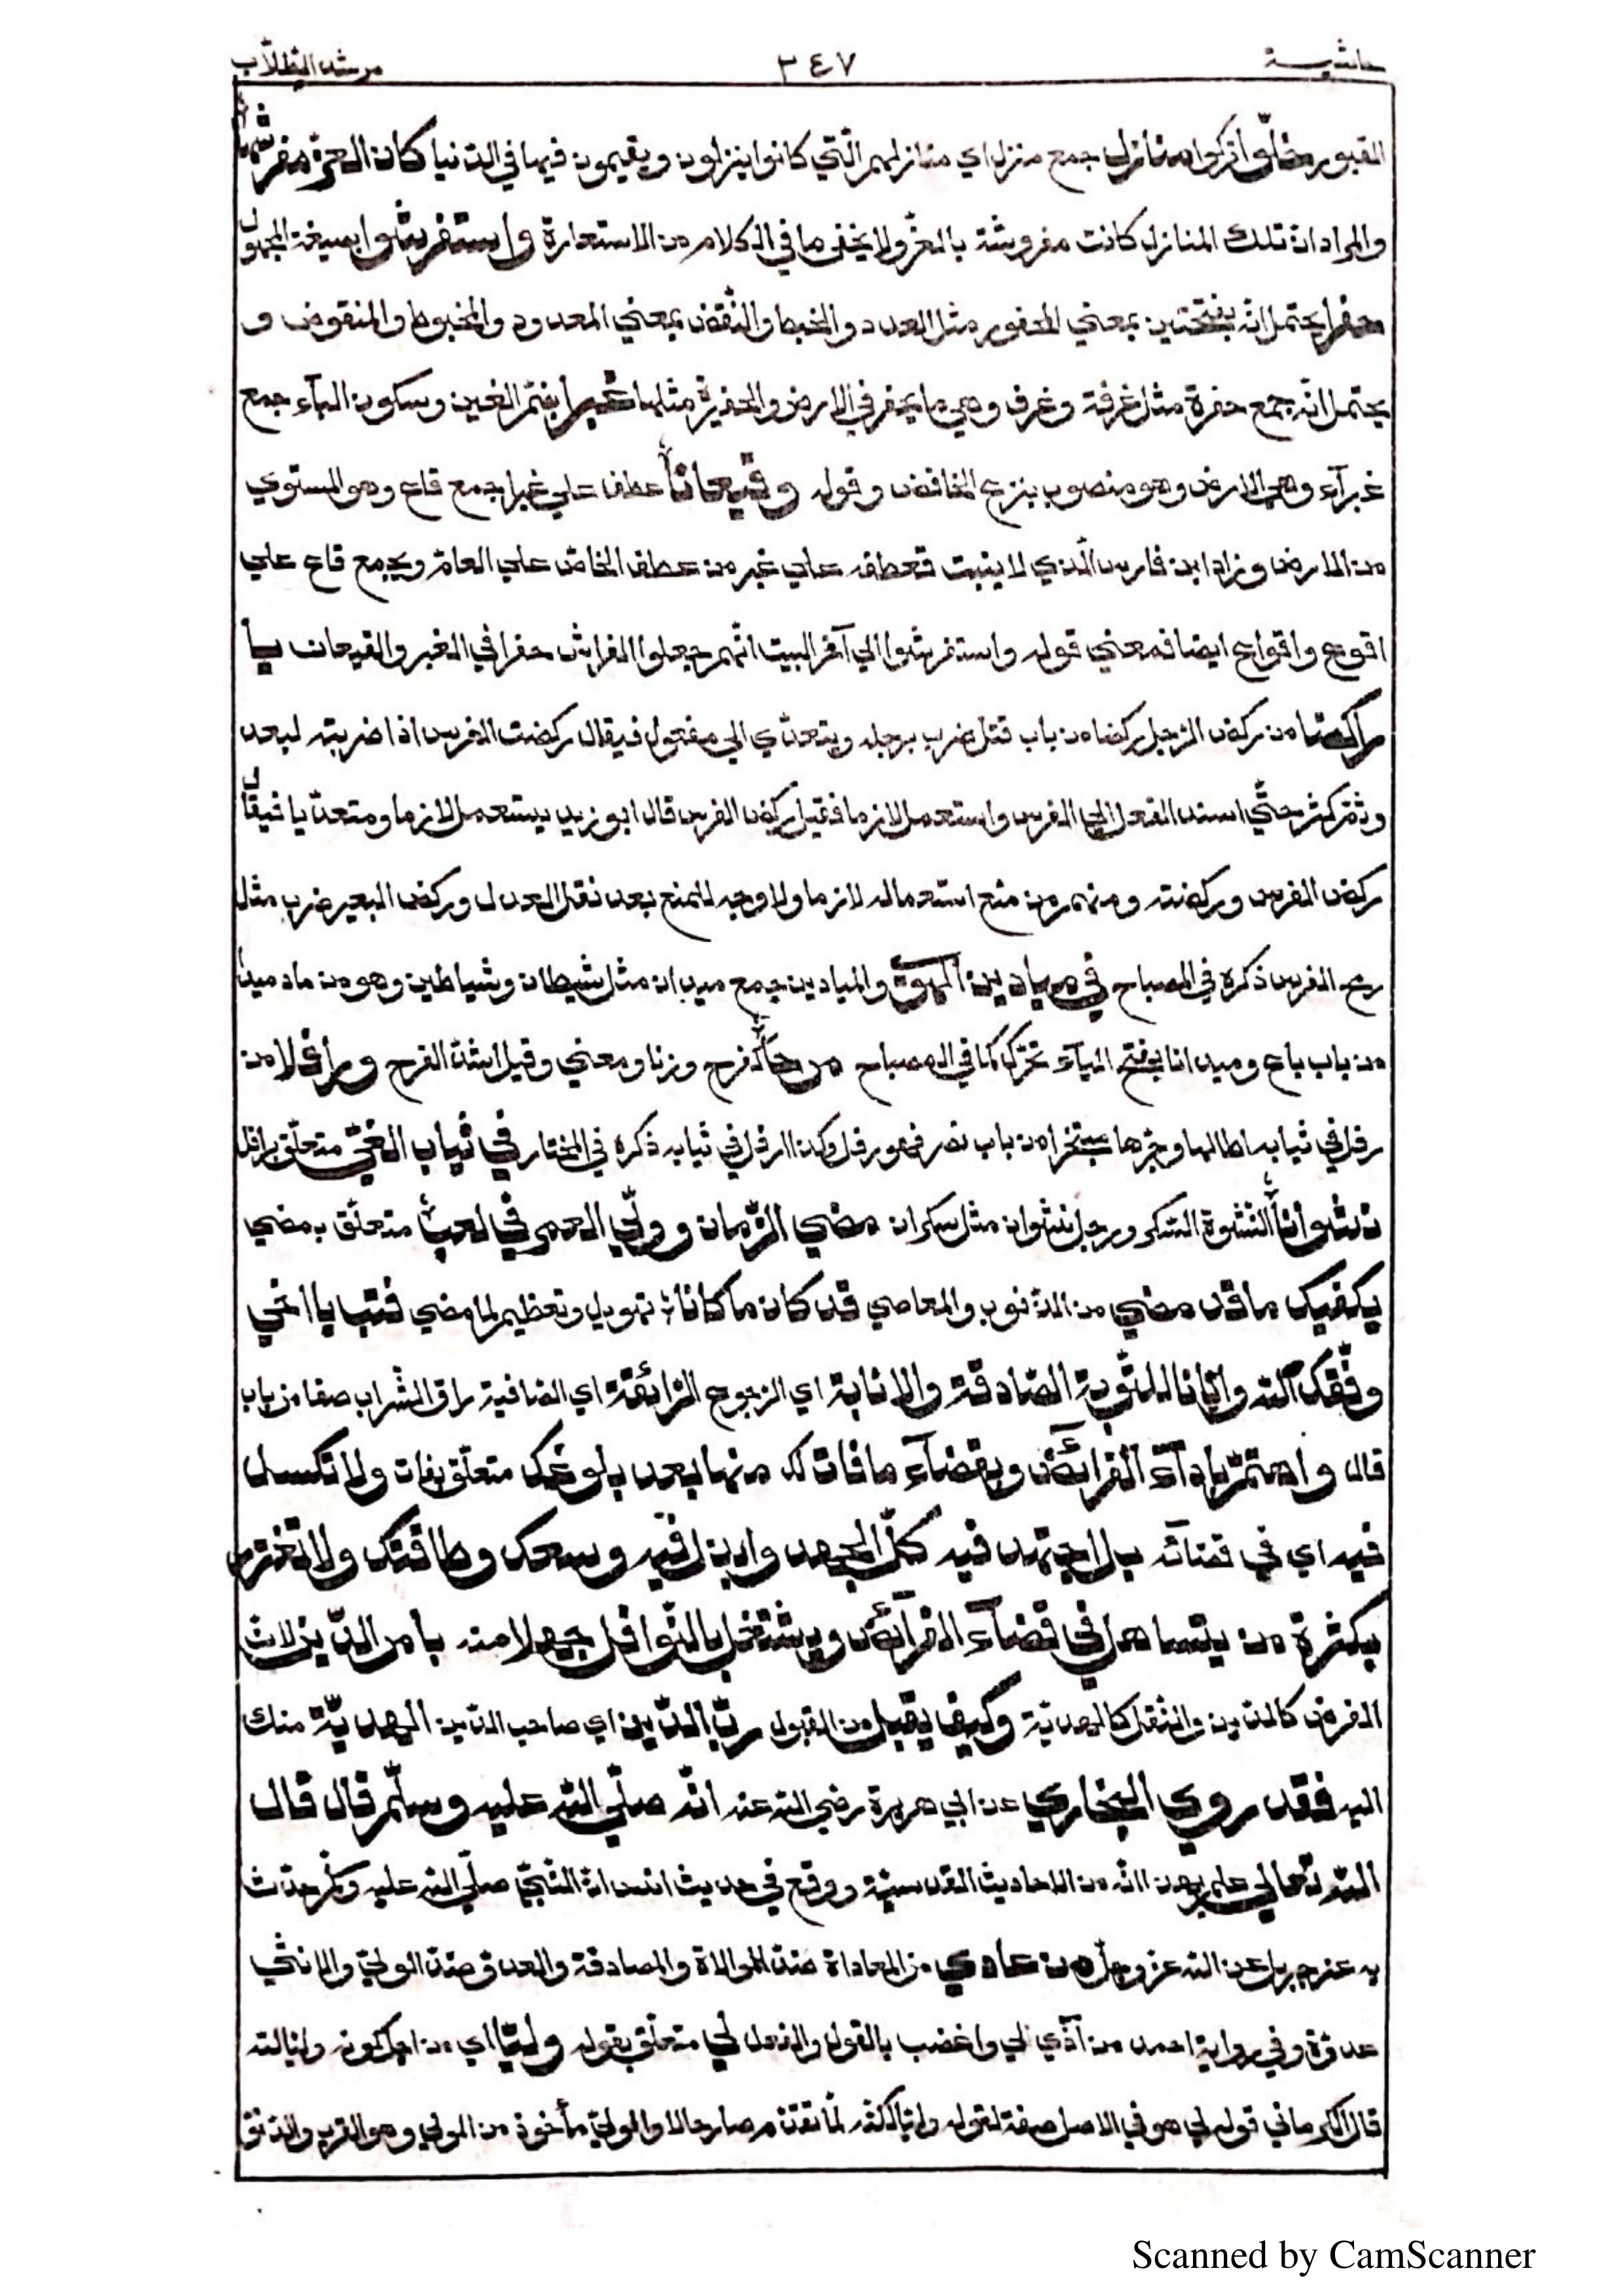 حاشية ٣٤٧ مرشد الطلاب
القبور خلّوا تركوا منازل جمع منزل اي منازلهم الّتي كانوا ينزلون ويقيمون فيها في الدنيا كان العزّ مفرشها
والمراد انّ تلك المنازل كانت مفروشة بالعزّ ولا يخفى ما في الكلام من الاستعارة واستفرشوا بصيغة المجهول
حفرا يحتمل انّه بفتحتين بمعني المحفور مثل العدد والخبط والنّقض بمعني المعدود والمخبوط والمنقوض و
يحتمل انّه جمع حفرة مثل غرفة وغرف وهي ما يحفر في الارض والحفيرة مثلها غبرا بضمّ الغين وسكون البآء جمع
غبرآء وهي الارض وهو منصوب بنزع الخافض وقوله وقيعانا عطف علي غبرا جمع قاع وهو المستوي
من الارض وزاد ابن فارس الّذي لا ينبت فعطفه علي غبر من عطف الخاصّ علي العامّ ويجمع قاع علي
اقوع واقواع ايضا فمعني قوله واستفرشوا الي آخر البيت انّهم جعلوا الفراش حفرا في الغبر والقيعان يا
راكضا من ركض الرّجل ركضا من باب قتل ضرب برجله ويتعدّي الي مفعول فيقال ركضت الفرس اذا ضربته ليعدو
وثمّ كثر حتّي اسند الفعل الي الفرس واستعمل لازما فقيل ركض الفرس قال ابو زيد يستعمل لازما ومتعدّيا فيقال
ركض الفرس وركضته ومنهم من منع استعماله لازما ولا وجه للمنع بعد نقل العدل وركض البعير ضرب مثل
رمح الفرس ذكره في المصباح في ميادين الهوي والميادين جمع ميدان مثل شيطان وشياطين وهو من ماد ميدا
من باب باع وميدانا بفتح اليآء تحرّك كما في المصباح مرحا كفرح وزنا ومعني وقيل اشدّ الفرح ورافلا من
رفل في ثيابه اطالها وجرّها متبخترا من باب نصر فهو رفل وكذا ارفل في ثيابه ذكره في المختار في ثياب الغيّ متعلّق برافلا
نشوانا النّشوة السّكر ورجل نشوان مثل سكران مضي الزّمان وولّي العمر في لعب متعلّق بمضي
يكفيك ما قد مضي من الذّنوب والمعاصي قد كان ما كانا تهويل وتعظيم لما مضي فتب يا اخي
وفّقك اللّه وايّانا للتّوبة الصّادقة والانابة اي الرّجوع الرّائقة اي الصّافية راق الشّراب صفا من باب
قال واهتمّ باداء الفرائض وبقضآء ما فات لك منها بعد بلوغك متعلّق بفات ولا تكسل
فيه اي في قضآئه بل اجتهد فيه كلّ الجهد وابذل فيه وسعك وطاقتك ولا تغترّ
بكثرة من يتساهل في قضآء الفرآئض ويشتغل بالنّوافل جهلا منه بامر الدّين لانّ
الفرض كالدّين والنّفل كالهديّة وكيف يقبل من القبول ربّ الدّين اي صاحب الدّين الهديّة منك
اليه فقد روي البخاري عن ابي هريرة رضي اللّه عنه انّه صلّي اللّه عليه وسلّم قال قال
اللّه تعالي علم بهذا انّه من الاحاديث القدسيّة ووقع في حديث انس انّ النّبيّ صلّي اللّه عليه وسلّم حدّث
به عن جبريل عن اللّه عزّ وجلّ من عادي من المعاداة ضدّ الموالاة والمصادقة والعدوّ ضدّ الوليّ والانثي
عدوّة وفي رواية احمد من آذي لي واغضب بالقول والفعل لي متعلّق بقوله وليّا اي من اجل كونه وليّا للّه
قال الكرماني قوله لي هو في الاصل صفة لقوله وليّا لكنّه لمّا تقدّم صار حالا والوليّ مأخوذ من الولي وهو القرب والدّنوّ
Scanned by CamScanner